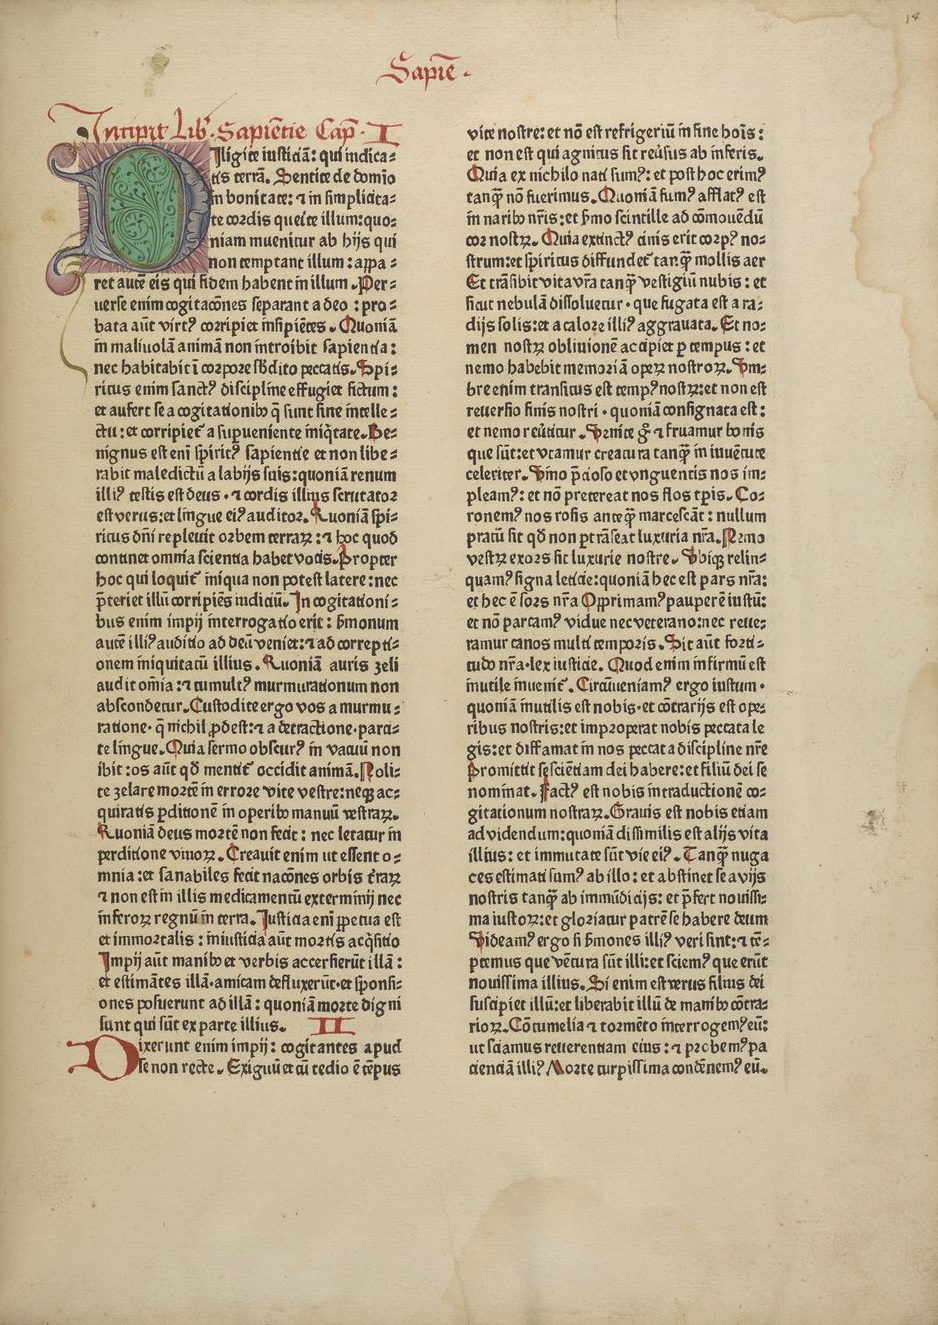 14
Sapiē.
Incipit Lib̄. Sapiētie Cap̄. I
Diligite iusticiā: qui iudica⸗
tis terrā. Sentite de domīo
in bonitate: ⁊ in simplicita⸗
te cordis querite illum: quo⸗
niam inuenitur ab hijs qui
non temptant illum: appa⸗
ret autē eis qui fidem habent in illum. Per⸗
uerse enim cogitacōnes separant a deo: pro⸗
bata aūt virtꝰ corripiet insipiētes. Quoniā
in maliuolā animā non introibit sapientia:
nec habitabit ī corpore sb̄dito peccatis. Spi⸗
ritus enim sanctꝰ discipline effugiet fictum:
et aufert se a cogitationibꝰ q̄ sunt sine intelle⸗
ctu: et corripiet̄ a supueniente iniq̇tate. Be⸗
nignus est enī spiritꝰ sapientie et non libe⸗
rabit maledictū a labijs suis: quoniā renum
illiꝰ testis est deus. ⁊ cordis illius scrutator
est verus: et lingue eiꝰ auditor. Quoniā spi⸗
ritus dn̄i repleuit orbem terraꝝ: ⁊ hoc quod
continet omnia scientia habet vocis. Propter
hoc qui loquit̄ iniqua non potest latere: nec
p̄teriet illū corripiēs iudiciū. In cogitationi⸗
bus enim impij interrogatio erit: s̄monum
autē illiꝰ auditio ad deū veniet: ⁊ ad correpti⸗
onem iniquitatū illius. Quoniā auris zeli
audit om̄ia: ⁊ tumultꝰ murmurationum non
abscondetur. Custodite ergo vos a murmu⸗
ratione. q̄ nichil ꝓdest: ⁊ a detractione. parci⸗
te lingue. Quia sermo obscurꝰ in vacuū non
ibit: os aūt qd̄ mentit̄ occidit animā. Noli⸗
te zelare mortē in errore vite vestre: neqꝫ ac⸗
quiratis ꝑditionē in operibꝰ manuū vestraꝝ.
Quoniā deus mortē non fecit: nec letatur in
perditione viuoꝝ. Creauit enim ut essent o⸗
mnia: et sanabiles fecit nacōnes orbis t̄raꝝ
⁊ non est in illis medicamentū exterminij nec
inferoꝝ regnū in terra. Iusticia enī ꝑpetua est
et immortalis: iniusticia aūt mortis acq̇sitio
Impij aūt manibꝰ et verbis accersierūt illā:
et estimātes illā. amicam defluxerūt. et spōnsi⸗
ones posuerunt ad illā: quoniā morte digni
sunt qui sūt ex parte illius. II
Dixerunt enim impij: cogitantes apud
se non recte. Exiguū et cū tedio ē tēpus
vite nostre: et nō est refrigeriū in fine hoīs:
et non est qui agnitus sit reūsus ab inferis.
Quia ex nichilo nati sumꝰ: et post hoc erimꝰ
tanq̄ nō fuerimus. Quoniā fumꝰ afflatꝰ est
in naribꝰ nr̄is: et s̄mo scintille ad cōmouēdū
cor nostꝝ. Quia extinctꝰ cinis erit corpꝰ no⸗
strum: et spiritus diffundet̄ tanq̄ mollis aer
Et trāsibit vita vr̄a tanq̄ vestigiū nubis: et
sicut nebulā dissoluetur. que fugata est a ra⸗
dijs solis: et a calore illiꝰ aggrauata. Et no⸗
men nostꝝ obliuionē accipiet ꝑ tempus: et
nemo habebit memoriā operꝝ nostroꝝ. Vm⸗
bre enim transitus est tempꝰ nostꝝ: et non est
reuersio finis nostri. quoniā consignata est:
et nemo reūtitur. Venite g̊ ⁊ fruamur bonis
que sūt: et vtamur creatura tanq̄ in iuuētute
celeriter. Vino p̄cioso et vnguentis nos im⸗
pleamꝰ: et nō pretereat nos flos tꝑis. Co⸗
ronemꝰ nos rosis anteq̄ marcescāt: nullum
pratū sit qd̄ non ꝑtrāseat luxuria nr̄a. Nemo
vestꝝ exors sit luxurie nostre. Vbiqꝫ relin⸗
quamꝰ signa leticie: quoniā hec est pars nr̄a:
et hec ē sors nr̄a Opprimamꝰ pauperē iustū:
et nō parcamꝰ vidue nec veterano: nec reue⸗
ramur canos multi temporis. Sit aūt forti⸗
tudo nr̄a. lex iusticie. Quod enim infirmū est
inutile inuenit̄. Circūueniamꝰ ergo iustum.
quoniā inutilis est nobis. et cōtrarijs est ope⸗
ribus nostris: et improperat nobis peccata le
gis: et diffamat in nos peccata discipline nr̄e
Promittit se sciētiam dei habere: et filiū dei se
nominat. Factꝰ est nobis in traductionē co⸗
gitationum nostraꝝ. Grauis est nobis etiam
ad videndum: quoniā dissimilis est alijs vita
illius: et immutate sūt vie eiꝰ. Tanq̄ nuga
ces estimati sumꝰ ab illo: et abstinet se a vijs
nostris tanq̄ ab immūdicijs: et p̄fert nouissi⸗
ma iustoꝝ: et gloriatur patrē se habere deum
Videamꝰ ergo si s̄mones illiꝰ veri sint: ⁊ tē⸗
ptemus que vētura sūt illi: et sciemꝰ que erūt
nouissima illius. Si enim est verus filius dei
suscipiet illū: et liberabit illū de manibꝰ cōtra⸗
rioꝝ. Cōtumelia ⁊ tormēto interrogemꝰ eū:
ut sciamus reuerentiam eius: ⁊ probemꝰ pa
cienciā illiꝰ Morte turpissima condēnemꝰ eū.